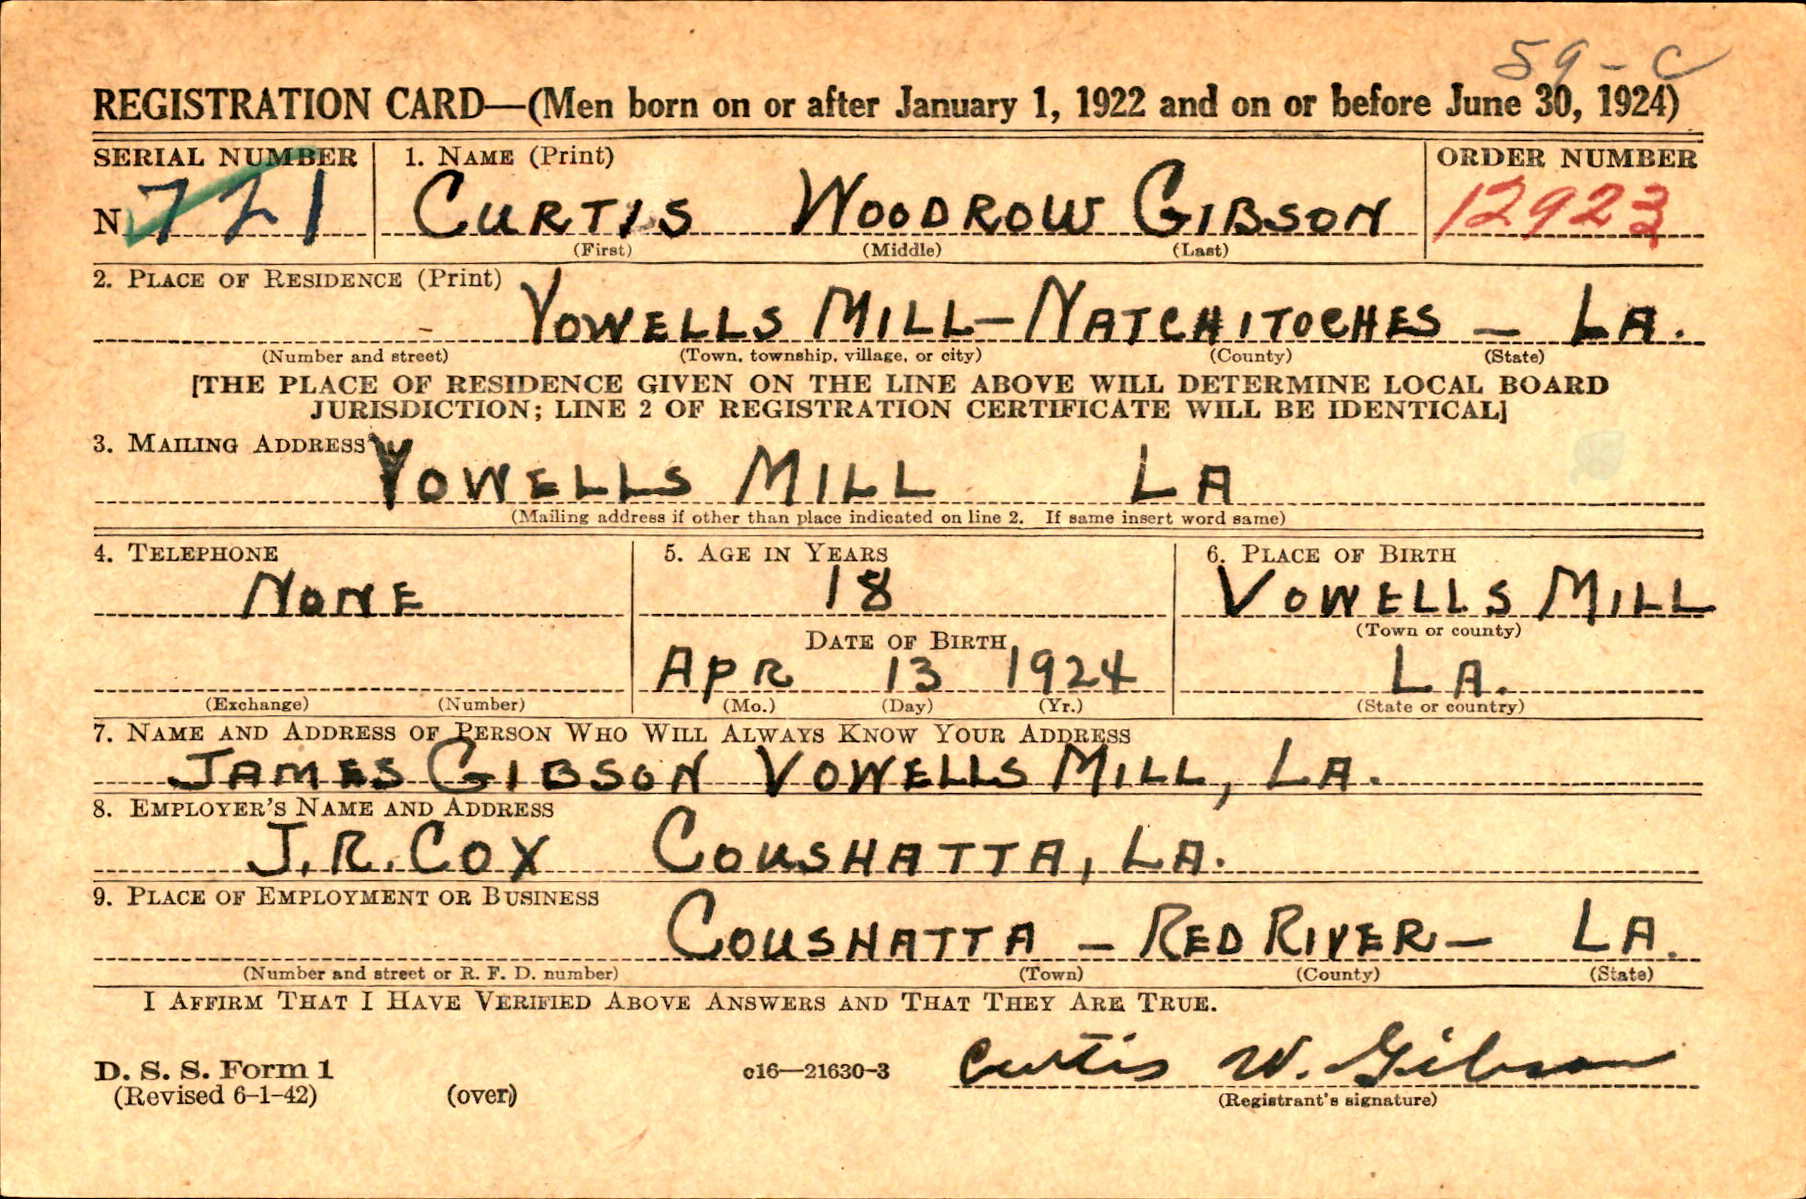 59-C
REGISTRATION CARD—(Men born on or after January 1, 1922 and on or before June 30, 1924)
SERIAL NUMBER 1. NAME (Print) ORDER NUMBER
N 721 CURTIS WOODROW GIBSON 12923
(First) (Middle) (Last)
2. PLACE OF RESIDENCE (Print)
VOWELLS MILL—NATCHITOCHES — LA.
(Number and street) (Town, township, village, or city) (County) (State)
[THE PLACE OF RESIDENCE GIVEN ON THE LINE ABOVE WILL DETERMINE LOCAL BOARD
JURISDICTION; LINE 2 OF REGISTRATION CERTIFICATE WILL BE IDENTICAL]
3. MAILING ADDRESS
VOWELLS MILL LA
(Mailing address if other than place indicated on line 2. If same insert word same)
4. TELEPHONE 5. AGE IN YEARS 6. PLACE OF BIRTH
NONE 18 VOWELLS MILL
(Town or county)
DATE OF BIRTH
APR 13 1924 LA.
(Exchange) (Number) (Mo.) (Day) (Yr.) (State or country)
7. NAME AND ADDRESS OF PERSON WHO WILL ALWAYS KNOW YOUR ADDRESS
JAMES GIBSON VOWELLS MILL, LA.
8. EMPLOYER'S NAME AND ADDRESS
J.R. COX COUSHATTA, LA.
9. PLACE OF EMPLOYMENT OR BUSINESS
COUSHATTA — RED RIVER — LA.
(Number and street or R. F. D. number) (Town) (County) (State)
I AFFIRM THAT I HAVE VERIFIED ABOVE ANSWERS AND THAT THEY ARE TRUE.
D. S. S. Form 1 c16—21630-3 Curtis W. Gibson
(Revised 6-1-42) (over) (Registrant's signature)